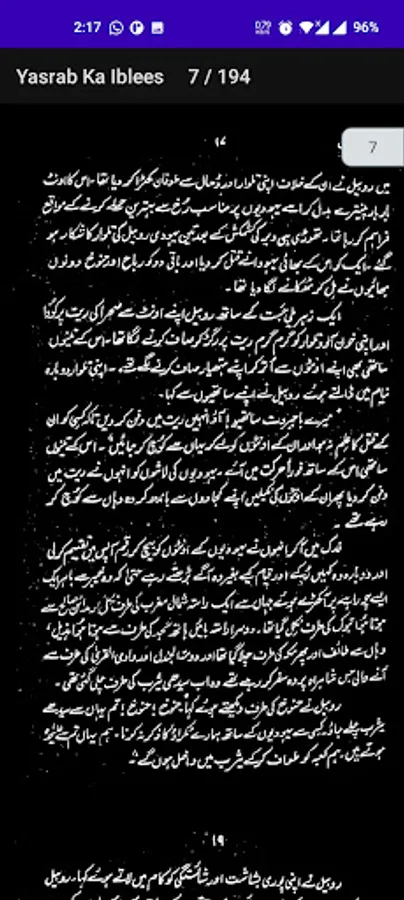 2:17 96%
Yasrab Ka Iblees 7 / 194
7
میں روبیل نے ان کے خلاف اپنی تلوار اور ڈھال سے طوفان کھڑا کر دیا تھا۔ اس کا اونٹ
بار بار پینترے بدل کر اسے یہودیوں پر مناسب رخ سے بہترین حملے کرنے کے مواقع
فراہم کر رہا تھا۔ تھوڑی ہی دیر کی کشمکش کے بعد تین یہودی روبیل کی تلوار کا شکار ہو
گئے۔ ایک کو اس کے بھائی یہودا نے قتل کر دیا اور باقی دو کو رباح اور متوخ دونوں
بھائیوں نے مل کر ٹھکانے لگا دیا تھا۔
ایک کے ساتھ روبیل اپنے اونٹ سے صحرا کی ریت پر کودا
اور اپنی خون آلود تلوار کو گرم گرم ریت پر رگڑ کر صاف کرنے لگا تھا۔ اس کے تینوں
ساتھی بھی اپنے اونٹوں سے اتر کر اپنے ہتھیار صاف کرنے لگے تھے۔ اپنی تلوار دوبارہ
نیام میں ڈالتے ہوئے روبیل نے اپنے ساتھیوں سے کہا۔
میرے ساتھیو! آؤ انہیں ریت میں دفن کر دیں تاکہ کسی کو ان
کے قتل کا علم نہ ہو اور ان کے اونٹوں کو لے کر یہاں سے کوچ کر جائیں۔ اس کے تینوں
ساتھی اس کے ساتھ فوراً حرکت میں آئے۔ یہودیوں کی لاشوں کو انہوں نے ریت میں
دفن کر دیا پھر ان کے اونٹوں کی نکیلیں اپنے کجاووں سے باندھ کر وہ وہاں سے کوچ کر
رہے تھے۔
فدک میں آ کر انہوں نے یہودیوں کے اونٹوں کو بیچ کر رقم آپس میں تقسیم کر لی
اور دوبارہ وہ کہیں رکے اور قیام کیے بغیر وہ آگے بڑھتے رہے حتی کہ وہ خیبر سے باہر ایک
ایسے چوراہے پر آ کھڑے ہوئے جہاں سے ایک راستہ شمال مغرب کی طرف سے
ہوتا ہوا تبوک کی طرف نکل گیا تھا۔ دوسرا راستہ بائیں ہاتھ کی طرف سے ہوتا ہوا
وہاں سے طائف اور پھر مکہ کی طرف چلا گیا تھا اور دومۃ الجندل اور وادی القریٰ کی طرف سے
آنے والی جس شاہراہ پر وہ سفر کر رہے تھے وہ اب سیدھی یثرب کی طرف چلی گئی تھی۔
روبیل نے متوخ کی طرف دیکھتے ہوئے کہا "متوخ! متوخ! تم یہاں سے سیدھے
یثرب چلے جاؤ۔ کسی سے یہودیوں کے ساتھ ہمارے ٹکراؤ کا ذکر نہ کرنا۔ ہم یہاں تم سے علیحدہ
ہوتے ہیں۔ ہم کعبہ کو طواف کر کے یثرب میں داخل ہوں گے"۔
۱۹
روبیل نے اپنی پوری بشاشت اور شائستگی کو کام میں لاتے ہوئے کہا۔ روبیل